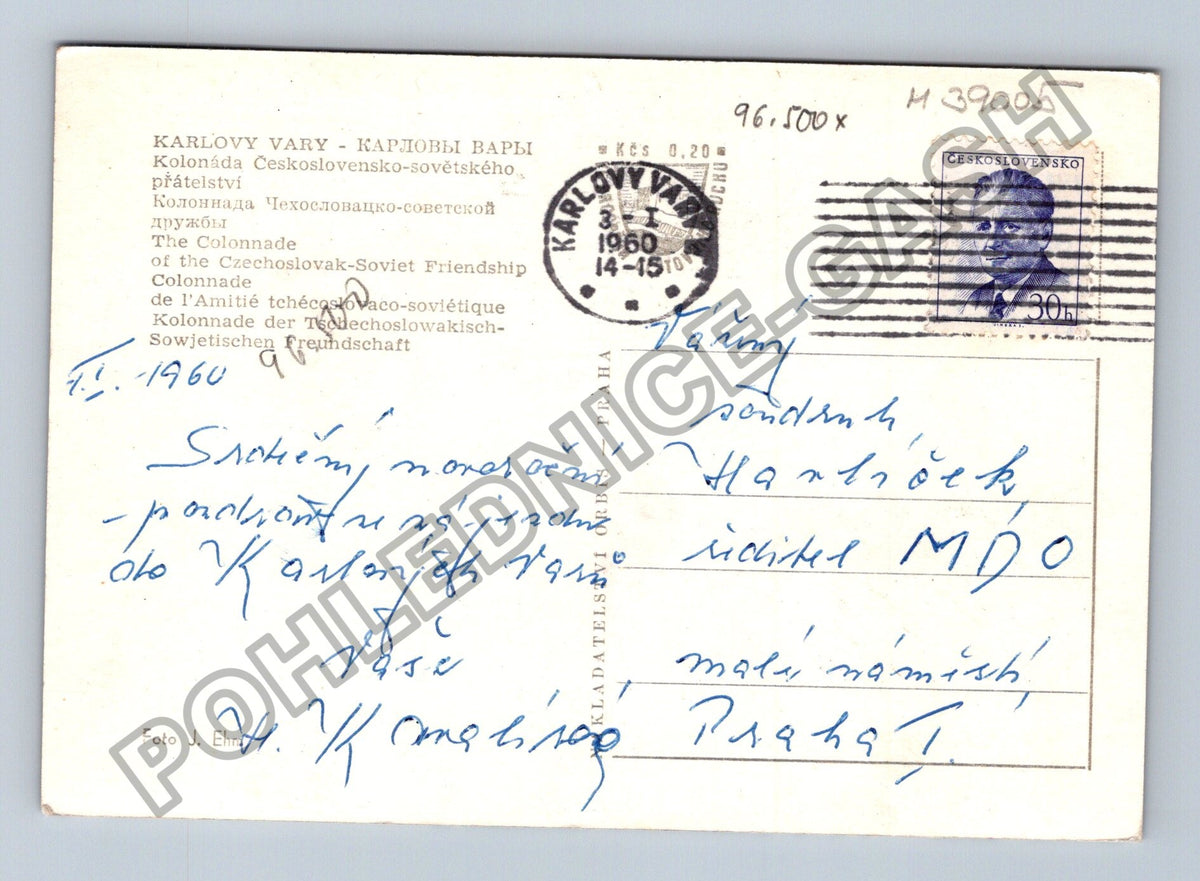 96.500x
M 39005
KARLOVY VARY - КАРЛОВЫ ВАРЫ
Kolonáda Československo-sovětského
přátelství
Колоннада Чехословацко-советской
дружбы
The Colonnade
of the Czechoslovak-Soviet Friendship
Colonnade
de l'Amitié tchécoslovaco-soviétique
Kolonnade der Tschechoslowakisch-
Sowjetischen Freundschaft
96.500
Kčs 0,20
KARLOVY VARY
3-I
1960
14-15
ČESKOSLOVENSKO
30h
1960
Srdečný novoroční
pozdrav ze zájezdu
do Karlových Varů
Vaše
Foto J. Ehm
NAKLADATELSTVÍ ORBIS - PRAHA
Vážený
soudruh
Havlíček
ředitel MDO
malé náměstí
Praha I.
POHLEDNICE-GASH